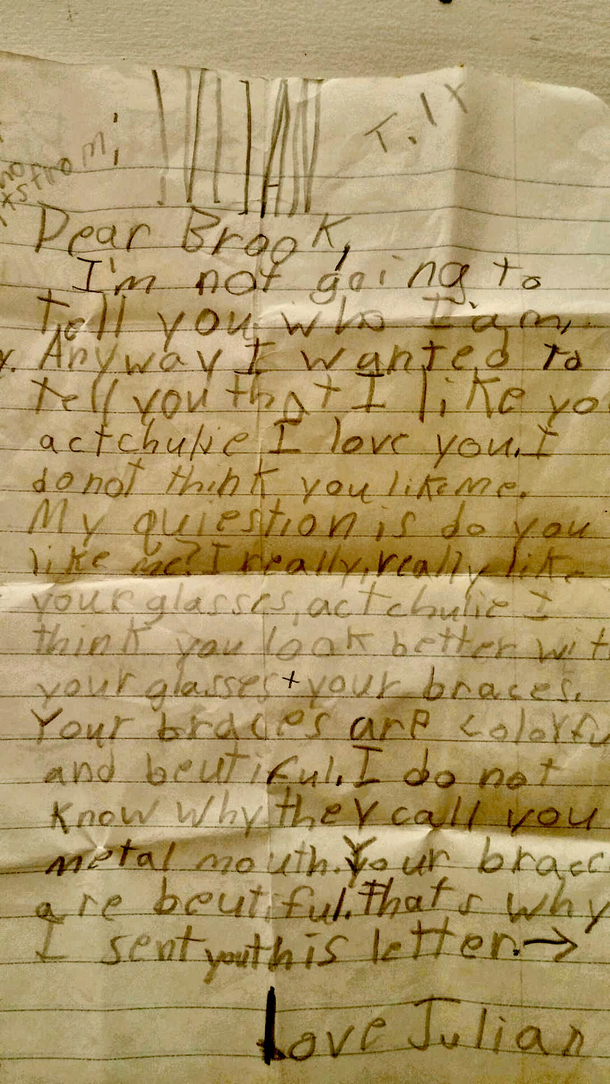 JULIAN
Dear Brook,
I'm not going to
tell you who I am.
Anyway I wanted to
tell you that I like yo
actchulie I love you. I
do not think you like me.
My quiestion is do you
like me? I really, really like
your glasses, actchulie I
think you look better wit
your glasses + your braces.
Your braces are colorfu
and beutiful. I do not
know why they call you
metal mouth. Your brac
are beutiful. that's why
I sent you this letter. →
Love Julian